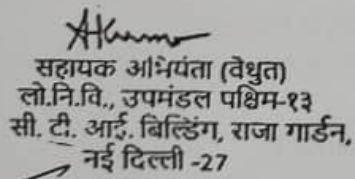 AKumar
सहायक अभियंता (वैधुत)
लो.नि.वि., उपमंडल पश्चिम-१३
सी. टी. आई. बिल्डिंग, राजा गार्डन,
नई दिल्ली -27